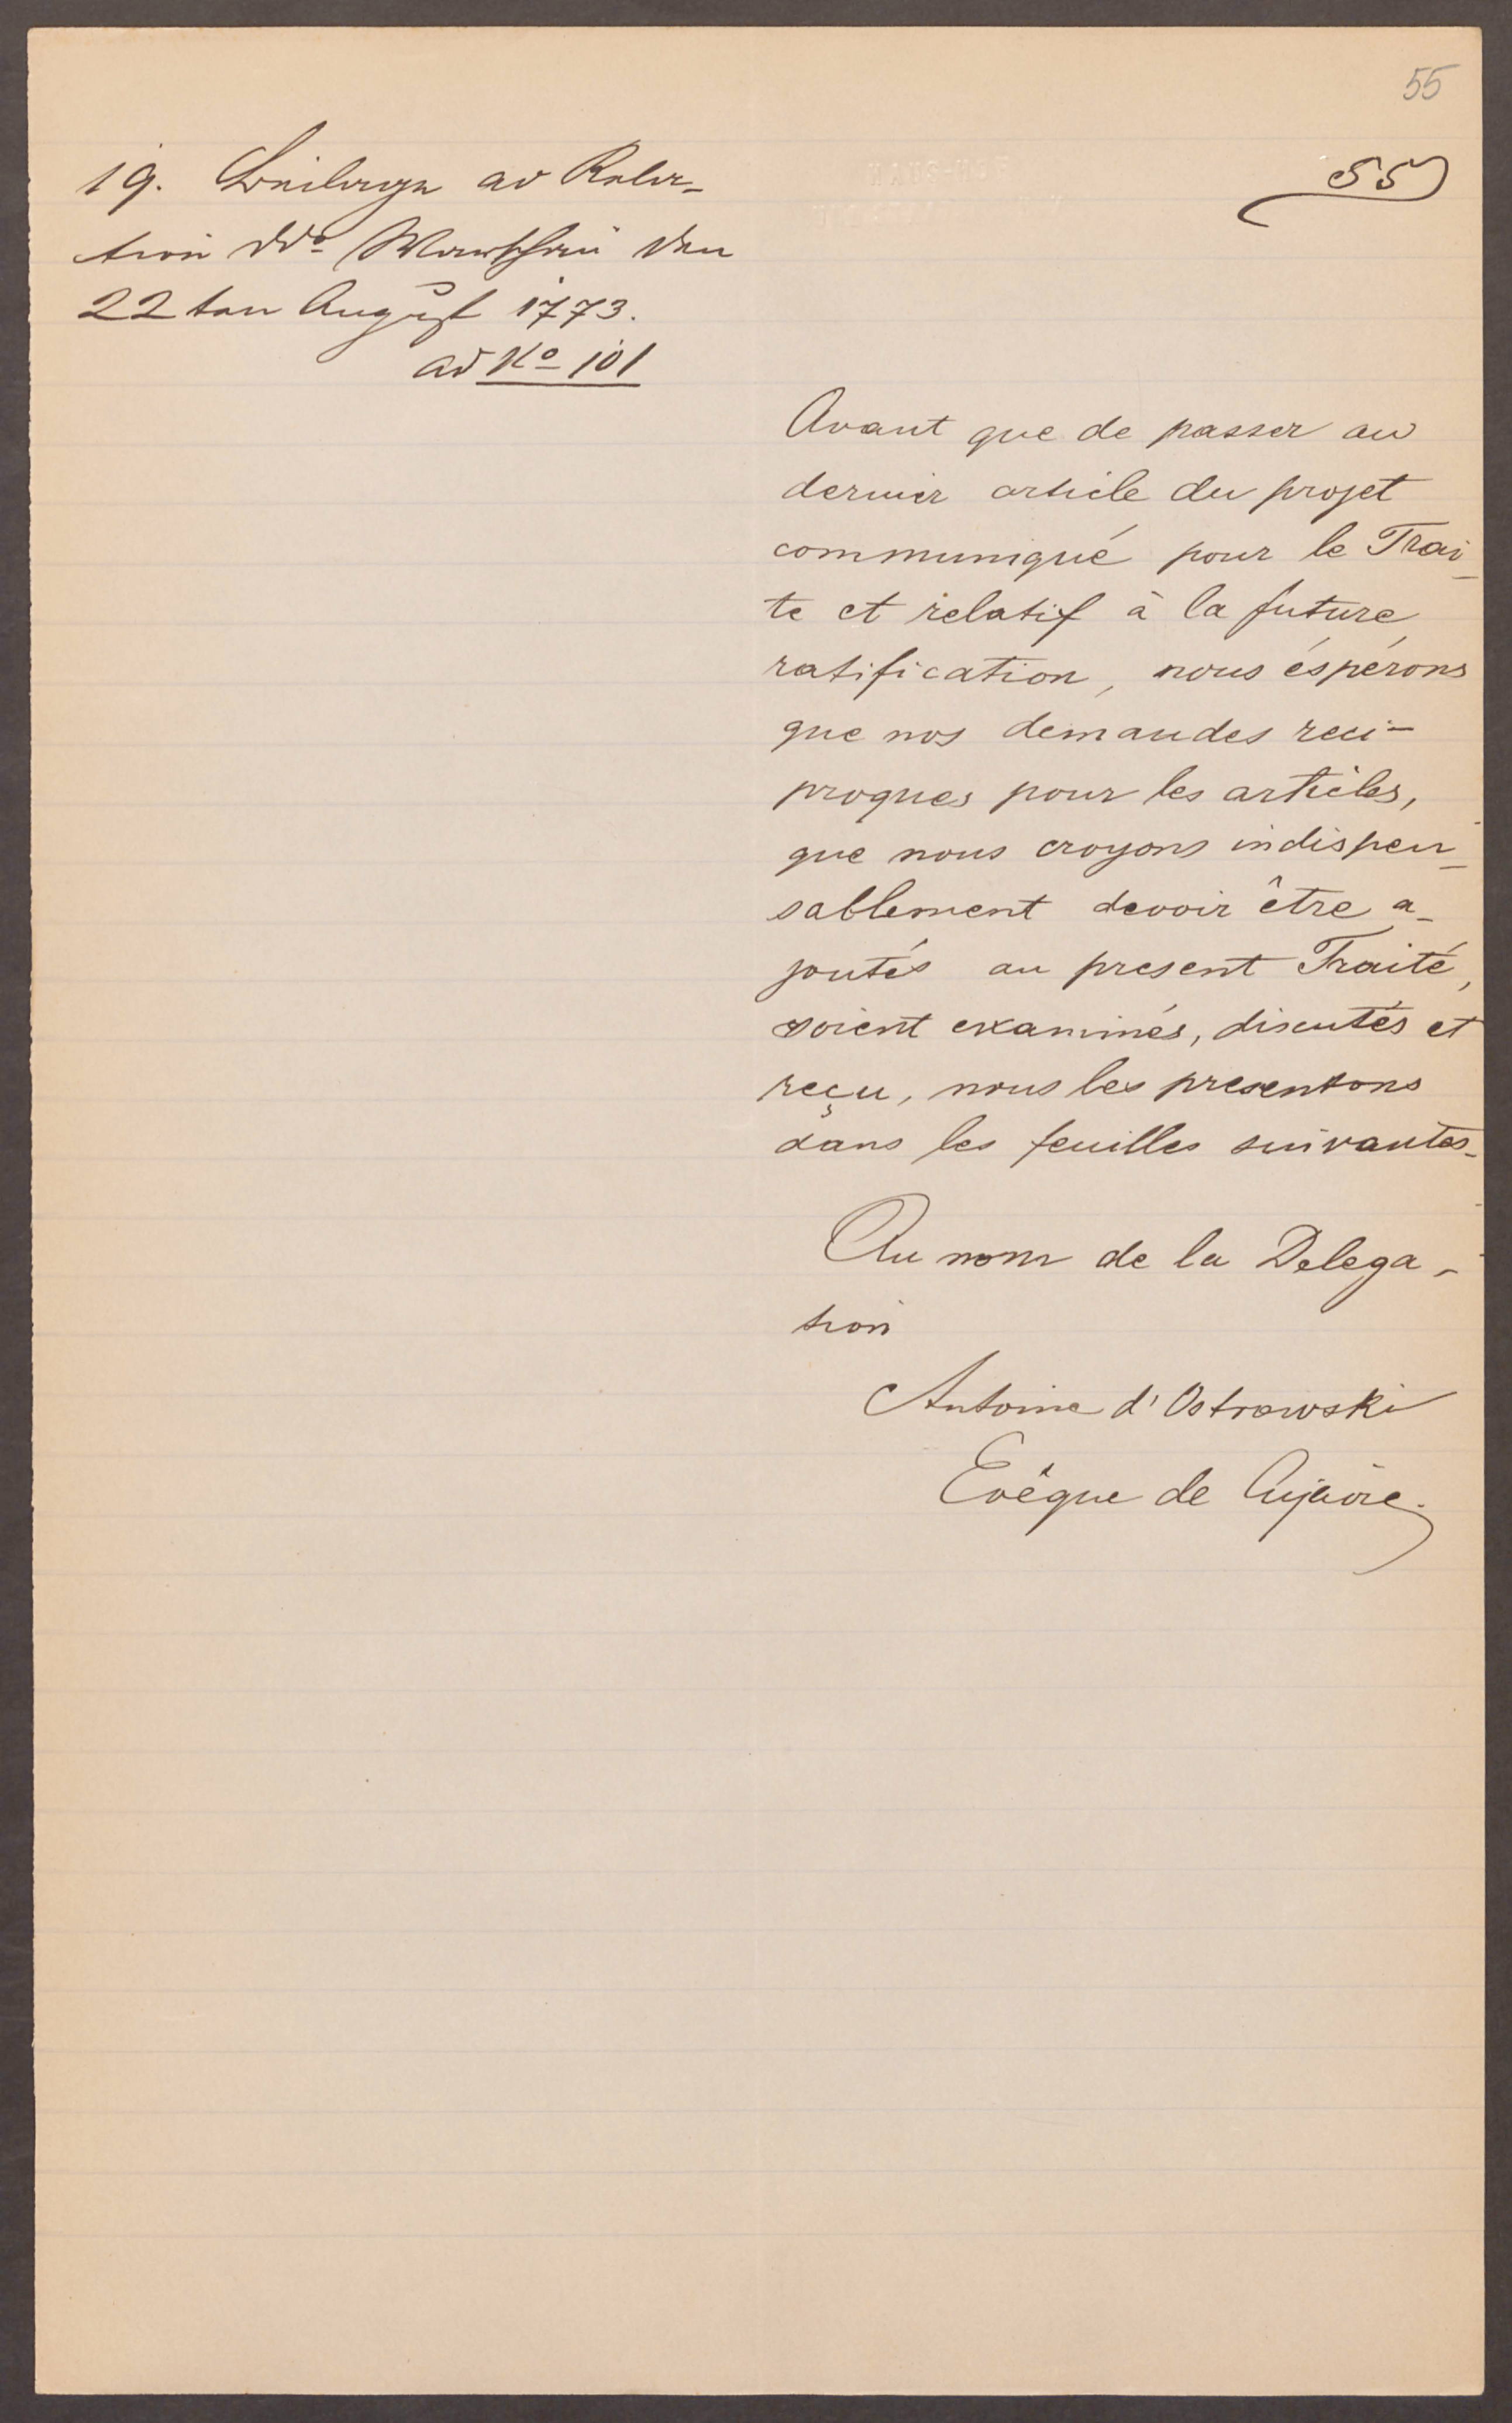 55
55
19. Beilage ad Rela-
tion ddo Warschau den
22ten August 1773.
ad No 101
Avant que de passer au
dernier article du projet
communiqué pour le Trai-
te et relatif à la future
ratification, nous éspérons
que nos demandes reci-
proques pour les articles,
que nous croyons indispen-
sablement devoir être a-
joutés au present Traité,
soient examinés, discutés et
reçu, nous les presentons
dans les feuilles suivantes.
Au nom de la Delega-
tion
Antoine d'Ostrowski
Evêque de Cujavie.